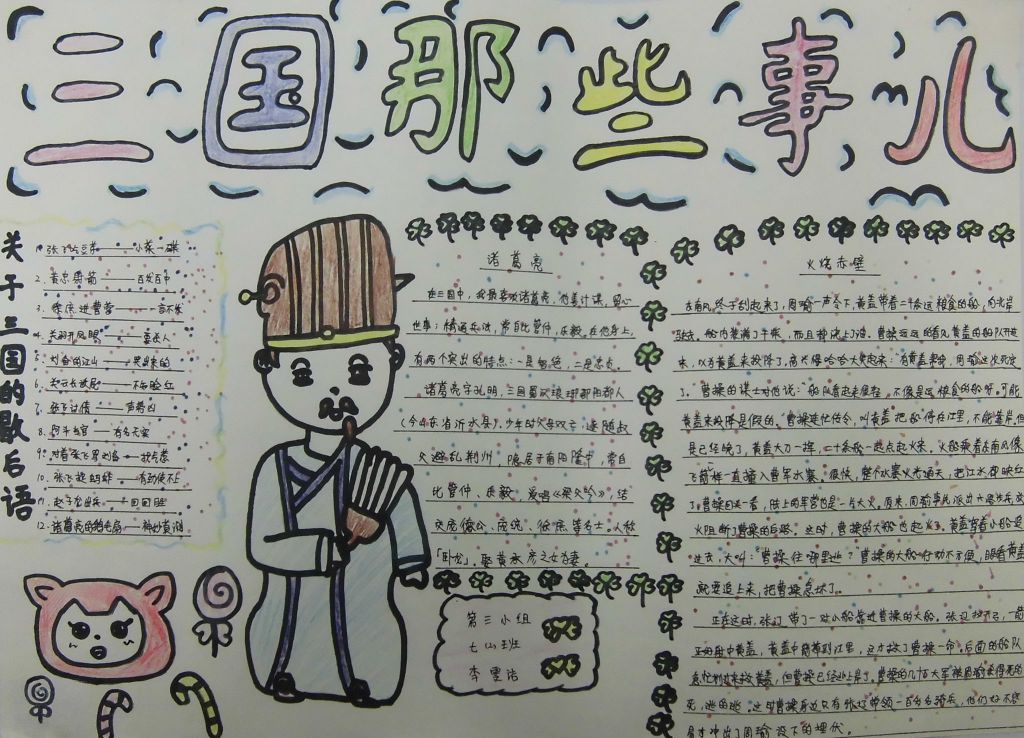 三国那些事儿
关于三国的歇后语
1. 张飞吃豆芽——小菜一碟
2. 黄忠射箭——百发百中
3. 徐庶进曹营——一言不发
4.
5. 刘备的江山——哭出来的
6. 关云长放屁——不知脸红
7. 张飞讨债——声势凶
8. 阿斗当官——有名无实
9. 对着张飞骂刘备——找气惹
10. 张飞赵胡胖——有劲使不上
11. 赵子龙出兵——回回胜
12. 诸葛亮的鹅毛扇——神妙莫测
诸葛亮
在三国中,我最喜欢诸葛亮,他善计谋,留心
世事,精通兵法,常自比管仲、乐毅,在他身上,
有两个突出的特点:一是智绝,二是忠贞。
诸葛亮字孔明,三国蜀汉琅琊郡阳都人
(今山东省沂水县),少年时父母双亡,逐随叔
父避乱荆州,隐居于南阳隆中,常自
比管仲、乐毅,爱唱《梁父吟》,结
交庞德公、庞统、徐庶等名士。人称
「卧龙」,娶黄承彦之女为妻。
第三小组
七(4)班
李雯洁
火烧赤壁
东南风终于刮起来了,周瑜一声令下,黄盖带着二十条运粮食的船,向北岸
驶去,船内装满了干柴,而且都浇上了油。曹操远远的看见黄盖的船队开过
来,以为黄盖来投降了,高兴得哈哈大笑起来:有黄盖来降,周瑜这次死定
了。曹操的谋士对他说:船队看起来很轻,不像是运粮食的船呀,可能
黄盖来投降是假的。曹操连忙传令,叫黄盖把船停在江里,不能靠岸,但
是已经晚了,黄盖大刀一挥,二十条船一起点起火来。火船乘着东南风像
飞箭样一直撞入曹军水寨。很快,整个水寨火光通天,把江水都映红
了。曹操回头一看,陆上的军营也是一片大火。原来,周瑜事先派出六路兵,放
火阻断了曹操的后路。这时,曹操的大船也起火了。黄盖带着小船追
过去,大叫:曹操往哪里逃?曹操的大船行动不方便,眼看黄盖
就要追上来,把曹操急坏了。
正在这时,张辽带了一对小船靠近曹操的大船。张辽拉开弓,一箭
正好射中黄盖,黄盖中箭掉到江里,这才救了曹操一命。后面的船队
急忙划过来救黄盖,但曹操已经逃上岸了。曹操的几十万大军被周瑜杀得死的
死,逃的逃。这时曹操身边只有张辽带领一百多名骑兵,他们好不容
易才冲出了周瑜设下的埋伏。